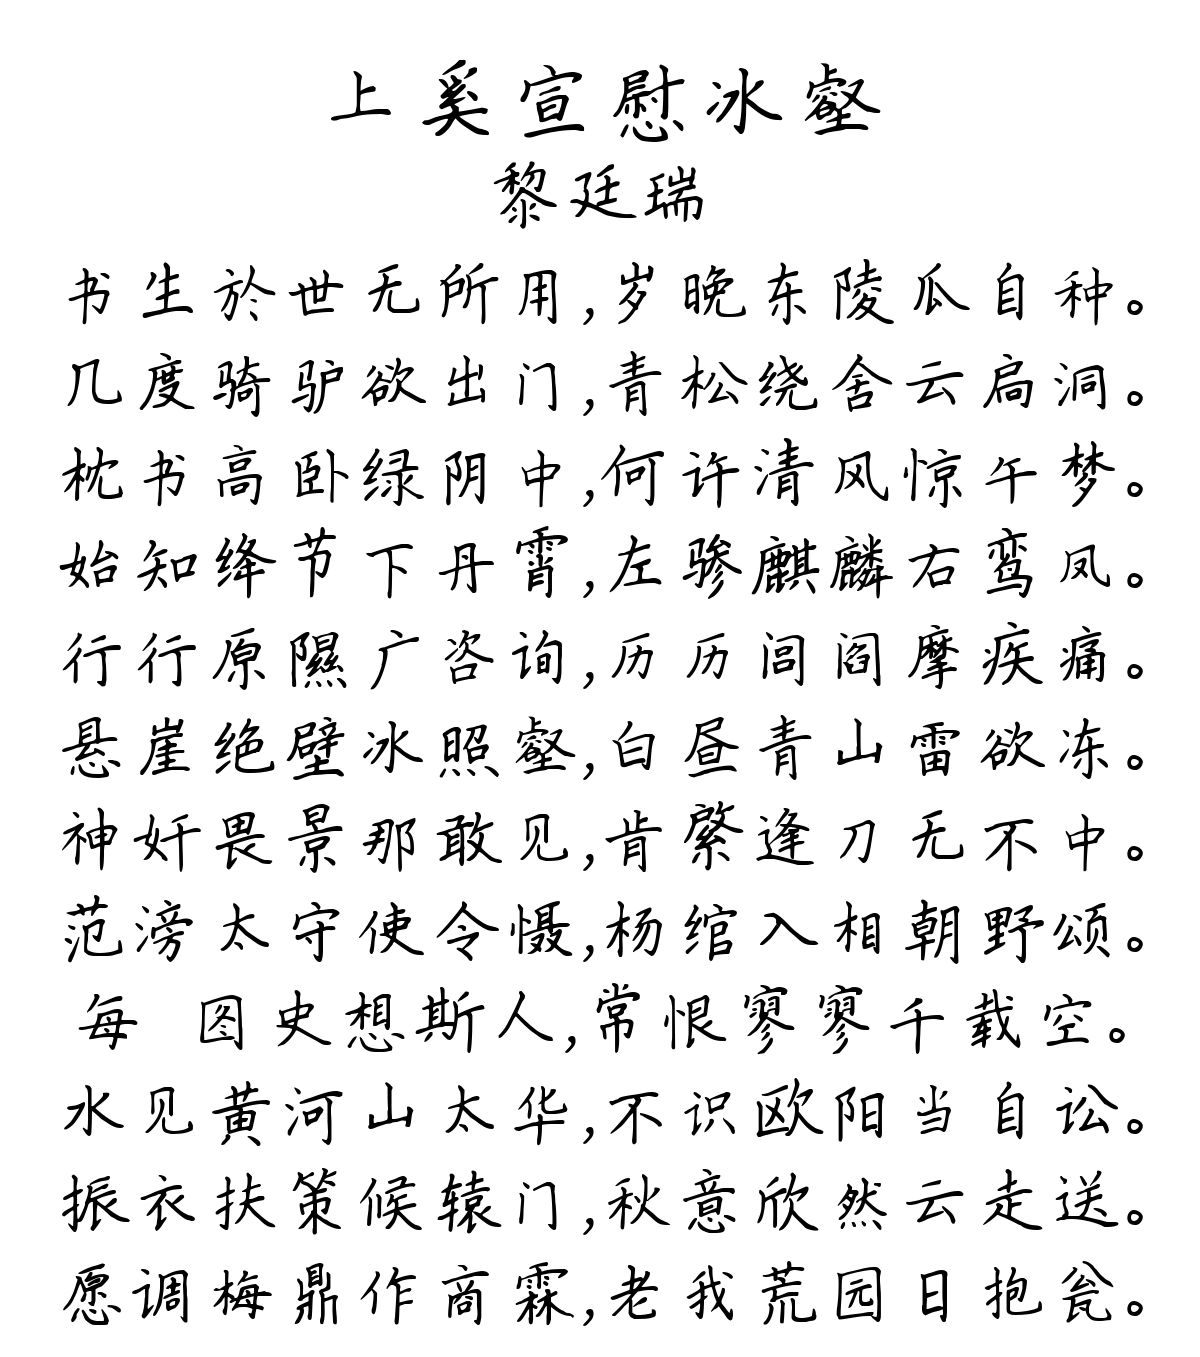 上奚宣慰冰壑
黎廷瑞
书生於世无所用,岁晚东陵瓜自种。
几度骑驴欲出门,青松绕舍云扃洞。
枕书高卧绿阴中,何许清风惊午梦。
始知绛节下丹霄,左骖麒麟右鸾凤。
行行原隰广咨询,历历闾阎摩疾痛。
悬崖绝壁冰照壑,白昼青山雷欲冻。
神奸畏景那敢见,肯綮逢刀无不中。
范滂太守使令慑,杨绾入相朝野颂。
每 图史想斯人,常恨寥寥千载空。
水见黄河山太华,不识欧阳当自讼。
振衣扶策候辕门,秋意欣然云走送。
愿调梅鼎作商霖,老我荒园日抱瓮。